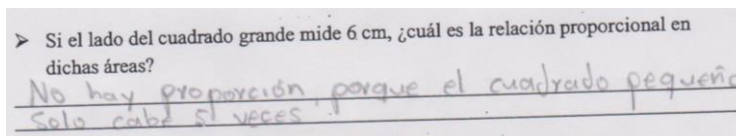 ➤ Si el lado del cuadrado grande mide 6 cm, ¿cuál es la relación proporcional en
dichas áreas?
No hay proporción, porque el cuadrado pequeño
Solo cabe 5 veces.